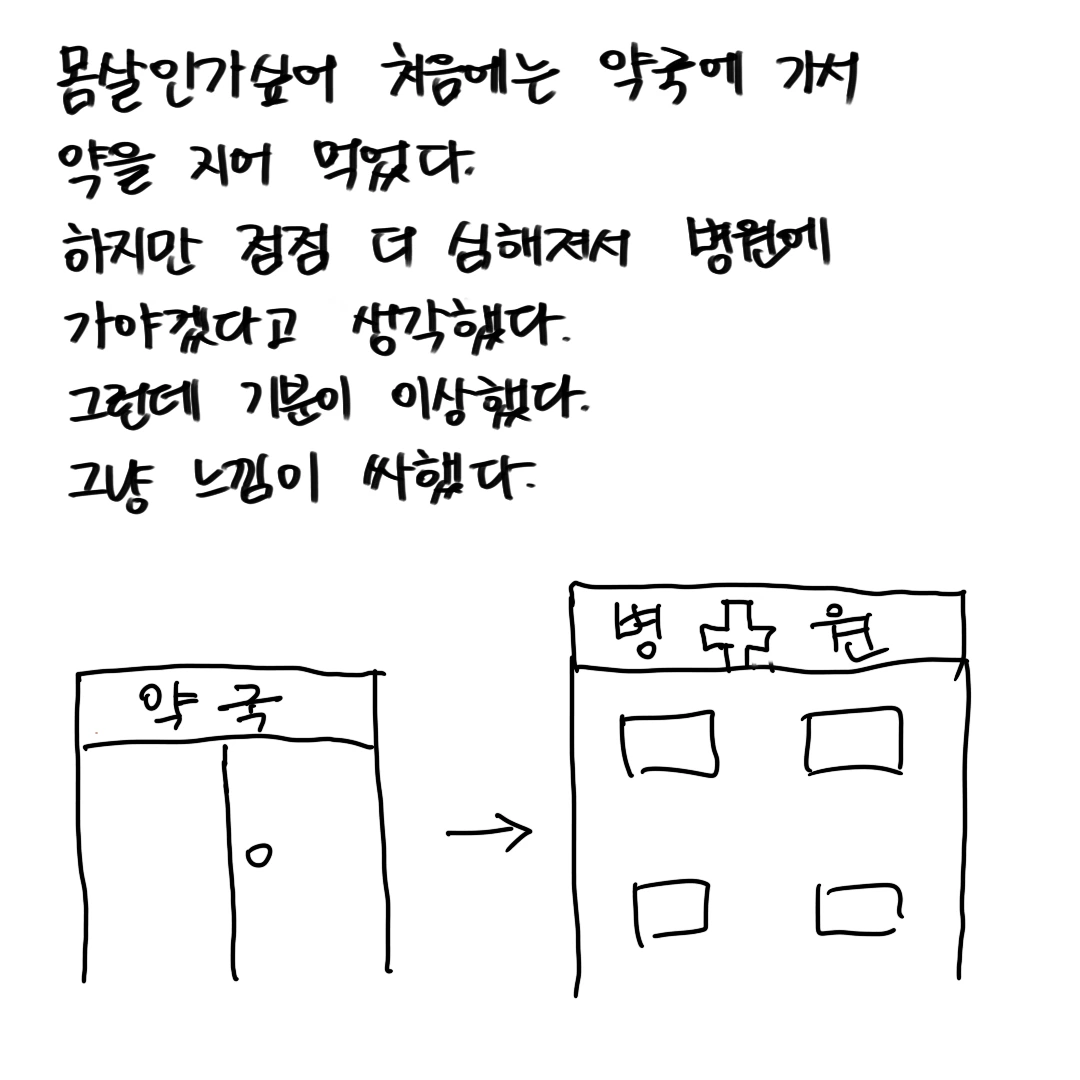 몸살인가싶어 처음에는 약국에 가서
약을 지어 먹었다.
하지만 점점 더 심해져서 병원에
가야겠다고 생각했다.
그런데 기분이 이상했다.
그냥 느낌이 싸했다.
병원
약국